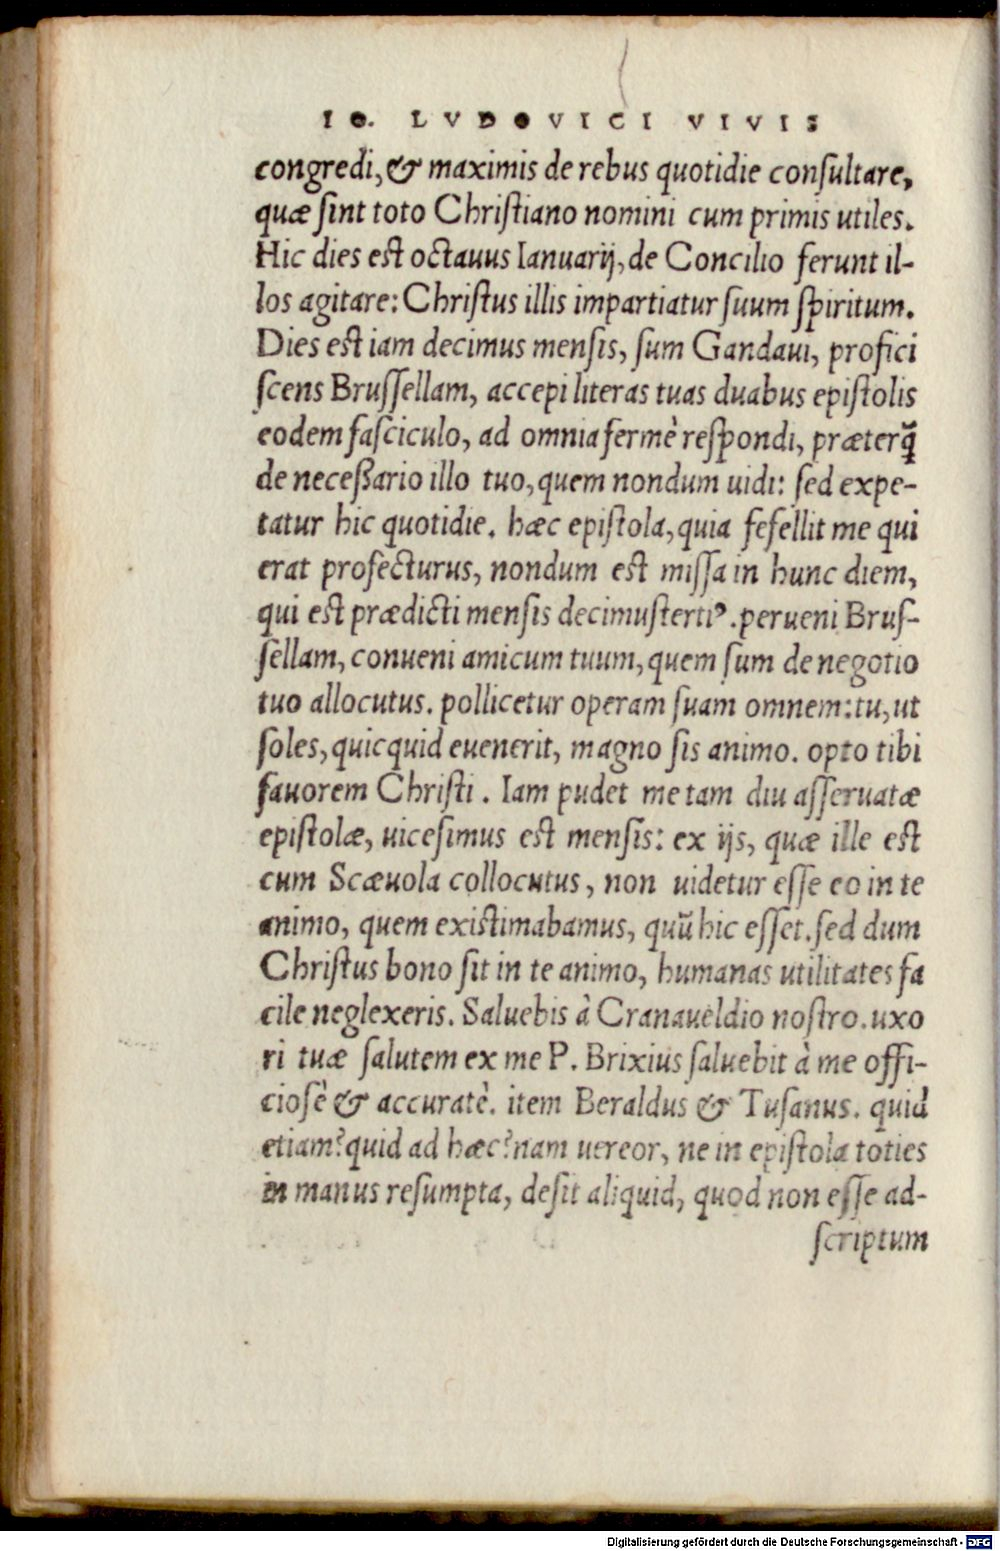 IO. LVDOVICI VIVIS
congredi, & maximis de rebus quotidie consultare,
quæ sint toto Christiano nomini cum primis utiles.
Hic dies est octauus Ianuarij, de Concilio ferunt il-
los agitare: Christus illis impartiatur suum spiritum.
Dies est iam decimus mensis, sum Gandaui, profici
scens Brussellam, accepi literas tuas duabus epistolis
eodem fasciculo, ad omnia fermè respondi, præterq̃
de neceßario illo tuo, quem nondum uidi: sed expe-
tatur hic quotidie. hæc epistola, quia fefellit me qui
erat profecturus, nondum est missa in hunc diem,
qui est prædicti mensis decimustertiꝰ. perueni Brus-
sellam, conueni amicum tuum, quem sum de negotio
tuo allocutus. pollicetur operam suam omnem: tu, ut
soles, quicquid euenerit, magno sis animo. opto tibi
fauorem Christi. Iam pudet me tam diu asseruatæ
epistolæ, uicesimus est mensis: ex ijs, quæ ille est
cum Scæuola collocutus, non uidetur esse eo in te
animo, quem existimabamus, quũ hic esset. sed dum
Christus bono sit in te animo, humanas utilitates fa
cile neglexeris. Saluebis à Cranaueldio nostro. uxo
ri tuæ salutem ex me P. Brixius saluebit à me offi-
ciosè & accuratè. item Beraldus & Tusanus. quid
etiam? quid ad hæc? nam uereor, ne in epistola toties
in manus resumpta, desit aliquid, quod non esse ad-
scriptum
Digitalisierung gefördert durch die Deutsche Forschungsgemeinschaft - DFG